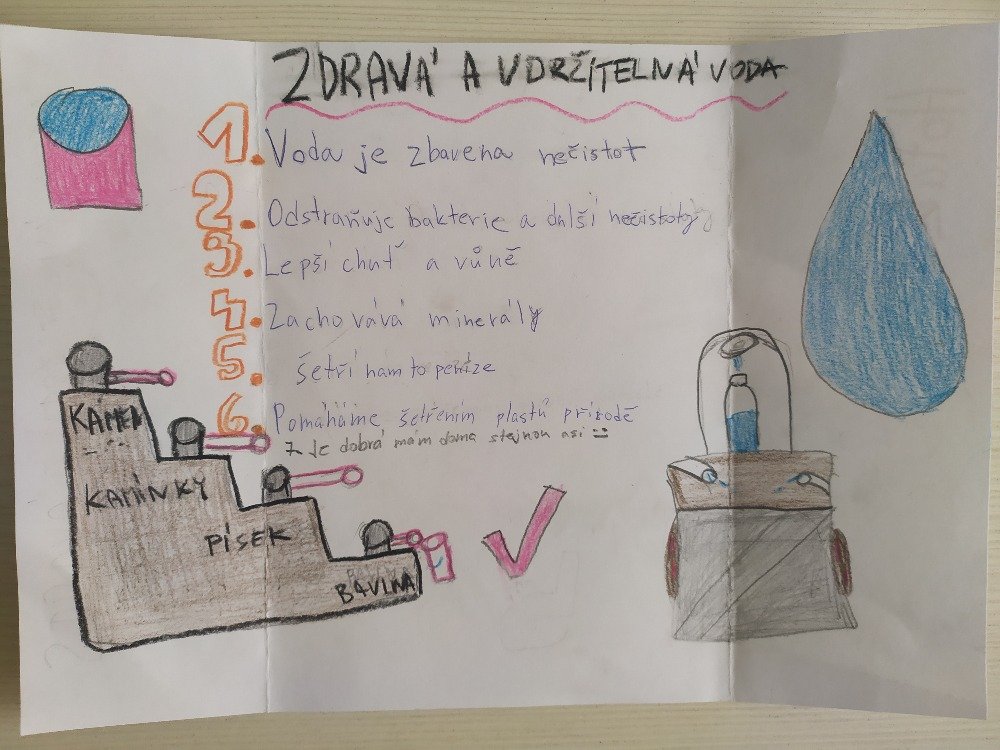 ZDRAVÁ A UDRŽITELNÁ VODA
1. Voda je zbavena nečistot
2. Odstraňuje bakterie a další nečistoty
3. Lepší chuť a vůně
4. Zachovává minerály
5. šetří nám to peníze
6. Pomáháme šetřením plastů přírodě
7. Je dobrá mám doma stejnou asi
KÁMEN
KAMÍNKY
PÍSEK
BAVLNA